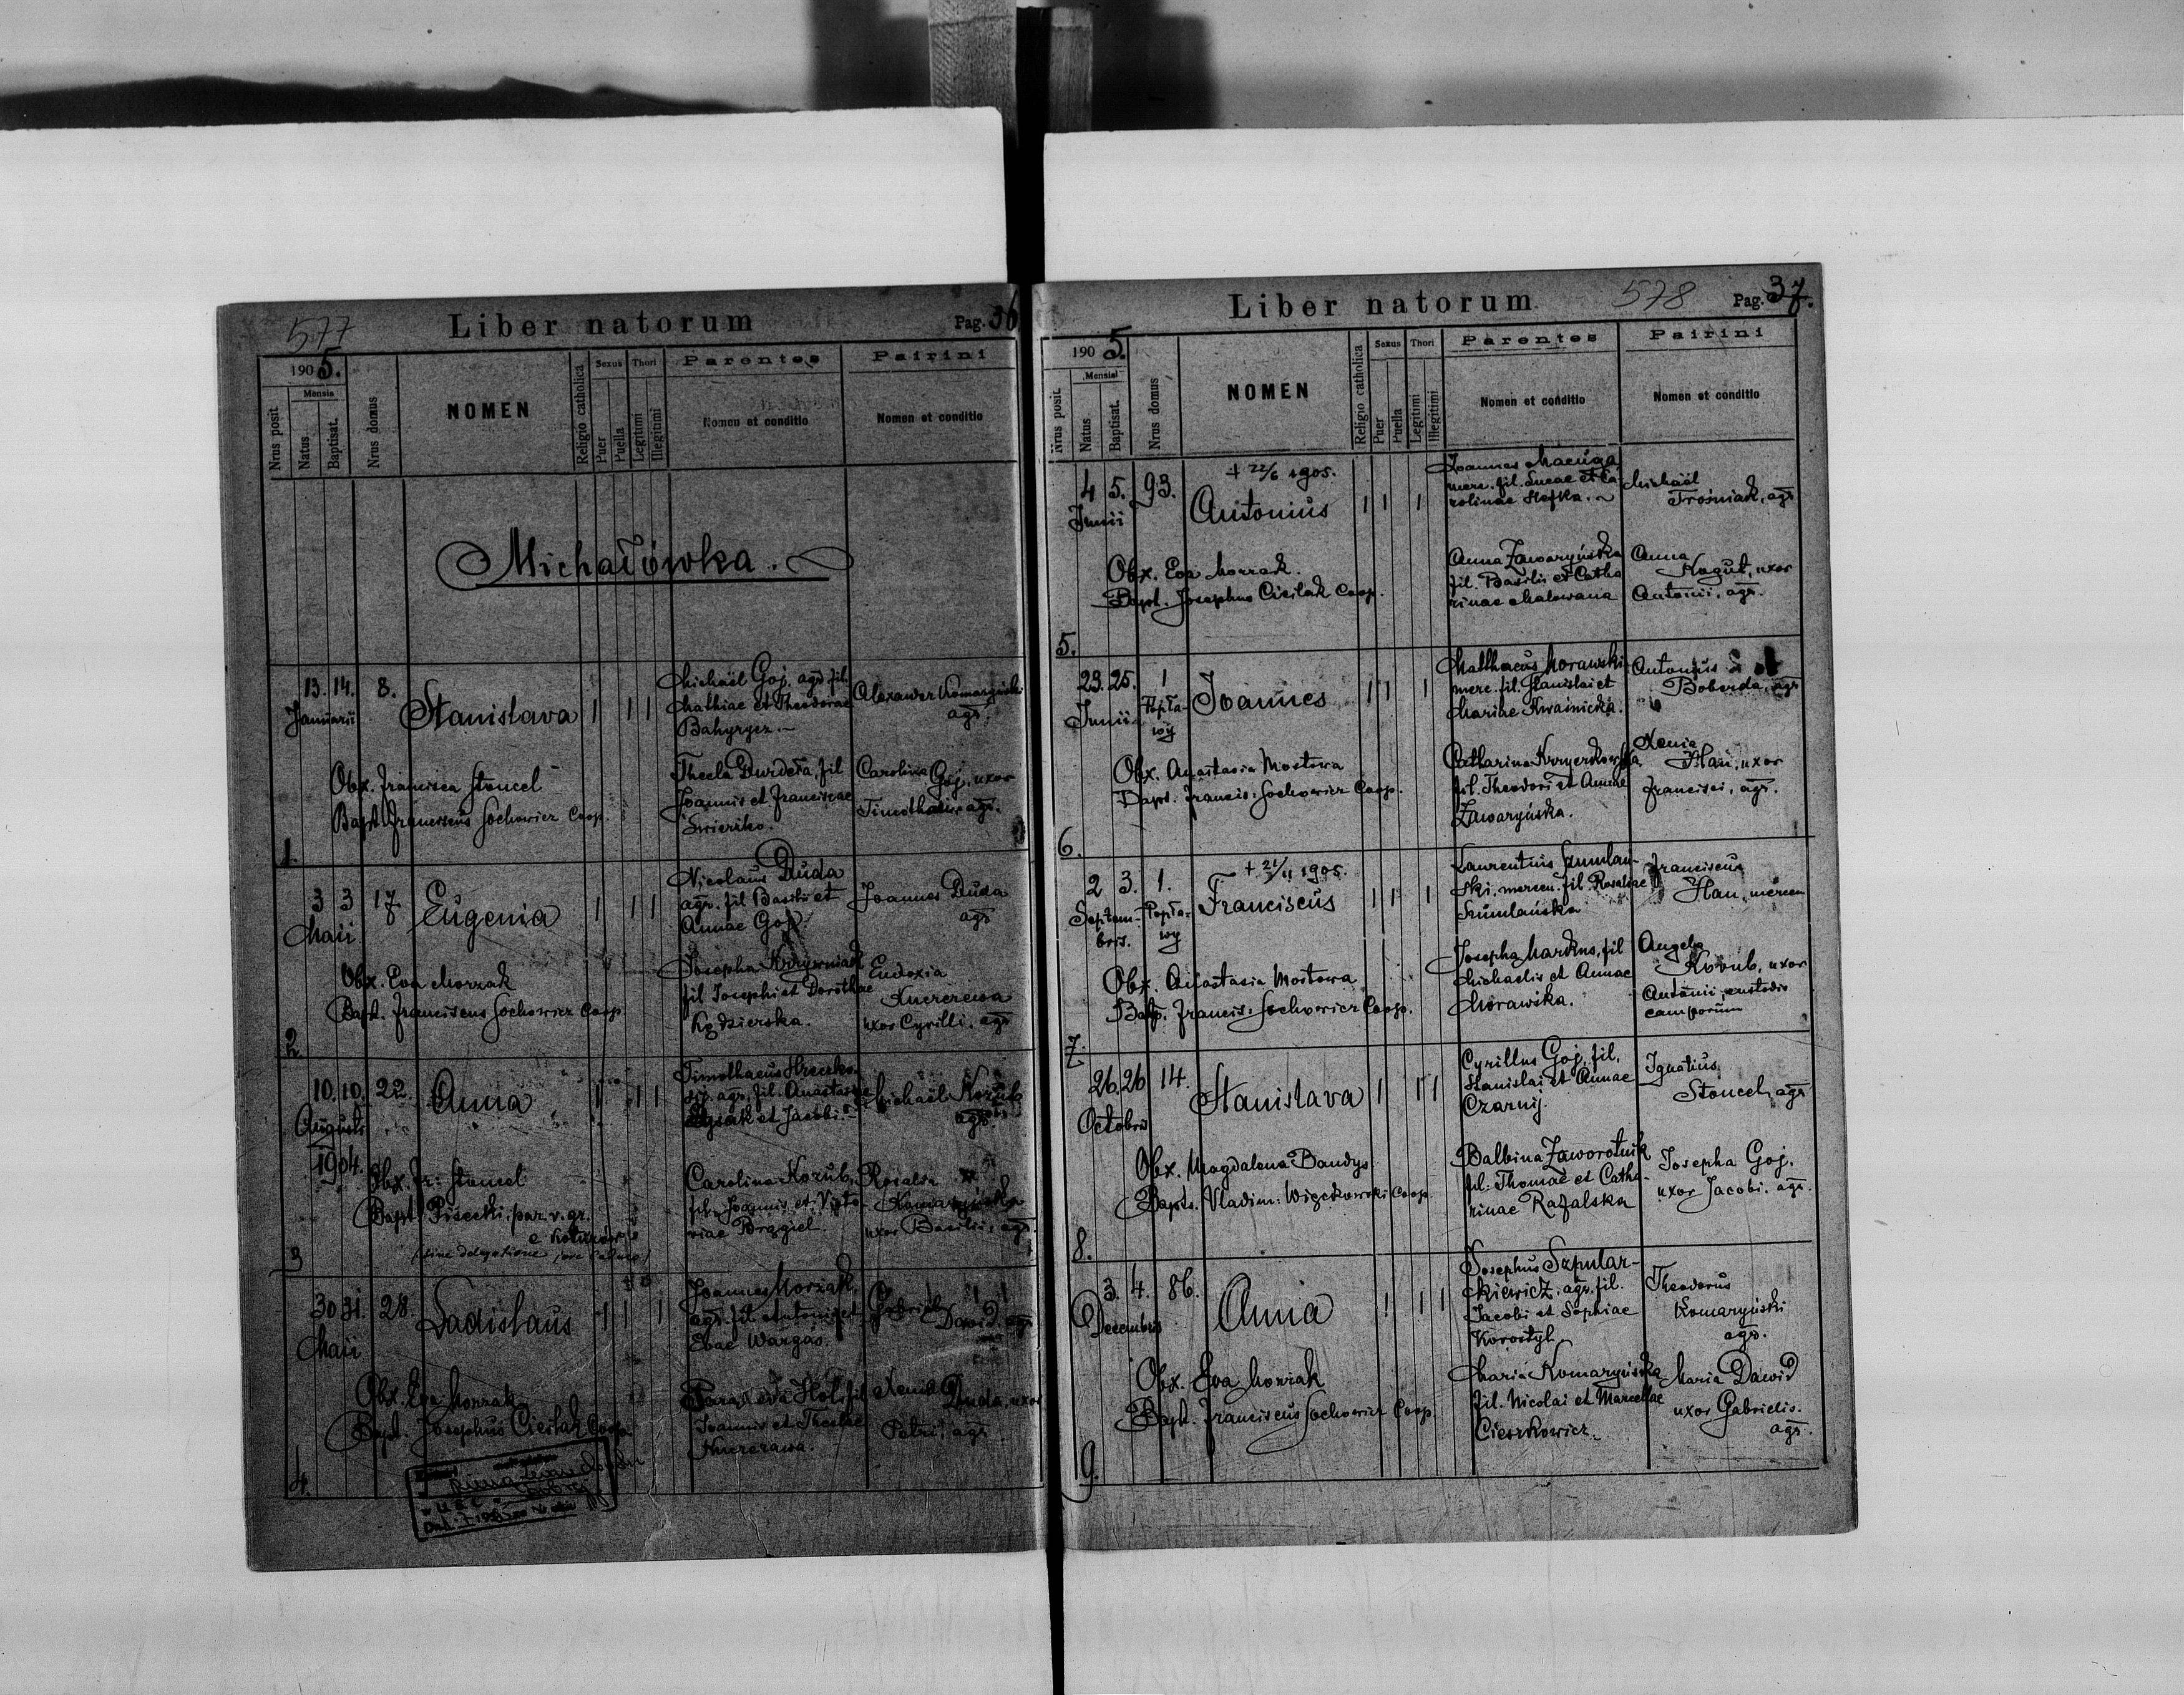 577
Liber natorum
Pag. 36
1905.
Mensis
Nrus posit
Natus
Baptisat.
Nrus domus
NOMEN
Religio catholica
Sexus
Puer
Puella
Thori
Legitimi
Illegitimi
Parentes
Nomen et conditio
Patrini
Nomen et conditio
Michałówka.
1.
13. 14. 8.
Januarii
Stanislava
1 1 1
Michaël Goj, agr. fil.
Mathiae et Theodorae
Bahyrycz.
Alexander Komaryński
agr.
Obx. Francisca Stoncel
Bapt. Franciscus Sochowicz Coop.
Thecla Durdeła, fil
Joannis et Franciscae
Świerzko.
Carolina Goj, uxor
Timothaei, agr.
2.
3 3 17
Maii
Eugenia
1 1 1
Nicolaus Duda
agr. fil Basilii et
Annae Goj.
Joannes Duda
agr
Obx. Eva Morzak
Bapt. Franciscus Sochowicz Coop
Josepha Krzywniak
fil Josephi et Dorothae
Kędzierska.
Eudoxia
uxor Cyrilli, agr
3
10. 10. 22.
Augusti
1904.
Anna
1 1 1
Timothaeus
agr, fil. Anastasiae
et Jacobi.
Michaël Kozub
agr.
Obx. Fr: Stoncel
Bapt. Pisecki, par. v. gr.
sine delegatione
Carolina Kozub,
fil. Joannis et Victo-
riae Brągiel.
Rosalia
Komaryńska
uxor Basilii, agr.
4.
30 31. 28.
Maii
Ladislaus
1 1 1
Joannes Morzak,
agr. fil. Antonii et
Evae Wargas.
Gabriel
Dawid, agr
Obx. Eva Morzak
Bapt. Josephus Cieślak Coop
fil
Joannis et Theclae
Xenia
Duda, uxor
Petri, agr
578
Liber natorum
Pag. 37.
1905.
Mensis
Nrus posit
Natus
Baptisat.
Nrus domus
NOMEN
Religio catholica
Sexus
Puer
Puella
Thori
Legitimi
Illegitimi
Parentes
Nomen et conditio
Patrini
Nomen et conditio
5.
4 5. 93.
Junii
+ 22/6 1905.
Antonius
1 1 1
Joannes Maciuga,
merc. fil. Lucae et Ca-
rolinae Hefka.
Michaël
Trośniak, agr
Obx. Eva Morzak.
Bapt. Josephus Cieślak Coop.
Anna Zawaryńska
fil. Basilii et Catha
rinae Malowana
Anna
Kogut, uxor
Antonii, agr.
6.
23. 25. 1
Junii
Popła-
wy
Joannes
1 1 1
Matthaeus Morawski
merc. fil. Stanislai et
Mariae Kwaśnicka.
Antonius
Boberda, agr
Obx. Anastasia Mostowa
Bapt. Francis: Sochowicz Coop.
Catharina
fil. Theodori et Annae
Zawaryńska.
Xenia
Han, uxor
Francisci, agr.
7.
2 3. 1.
Septem-
bris.
Popła-
wy
+ 21/11 1905.
Franciscus
1 1 1
Laurentius Szumlań-
ski, mercen. fil. Rosaliae
Szumlańska
Franciscus
Han, mercen
Obx. Anastasia Mostowa
Bapt. Francis: Sochowicz Coop.
Josepha Markus, fil
Michaelis et Annae
Morawska.
Angela
Kozub, uxor
Antonii, custodis
camporum
8.
26. 26 14.
Octobris
Stanislava
1 1 1
Cyrillus Goj, fil.
Stanislai et Annae
Czarnij.
Ignatius
Stoncel, agr
Obx. Magdalena Bandys
Bapts. Vladim: Więckowski Coop.
Balbina Zaworotnik
fil: Thomae et Catha-
rinae Rafalska
Josepha Goj.
uxor Jacobi. agr.
9.
3. 4. 86.
Decembris
Anna
1 1 1
Josephus Szpular-
kiewicz, agr. fil.
Jacobi et Sophiae
Korostyl.
Theodorus
Komaryński
agr.
Obx. Eva Morzak
Bapt. Franciscus Sochowicz Coop
Maria Komaryńska
fil. Nicolai et Marcellae
Cieszkowicz.
Maria Dawid
uxor Gabrielis.
agr.